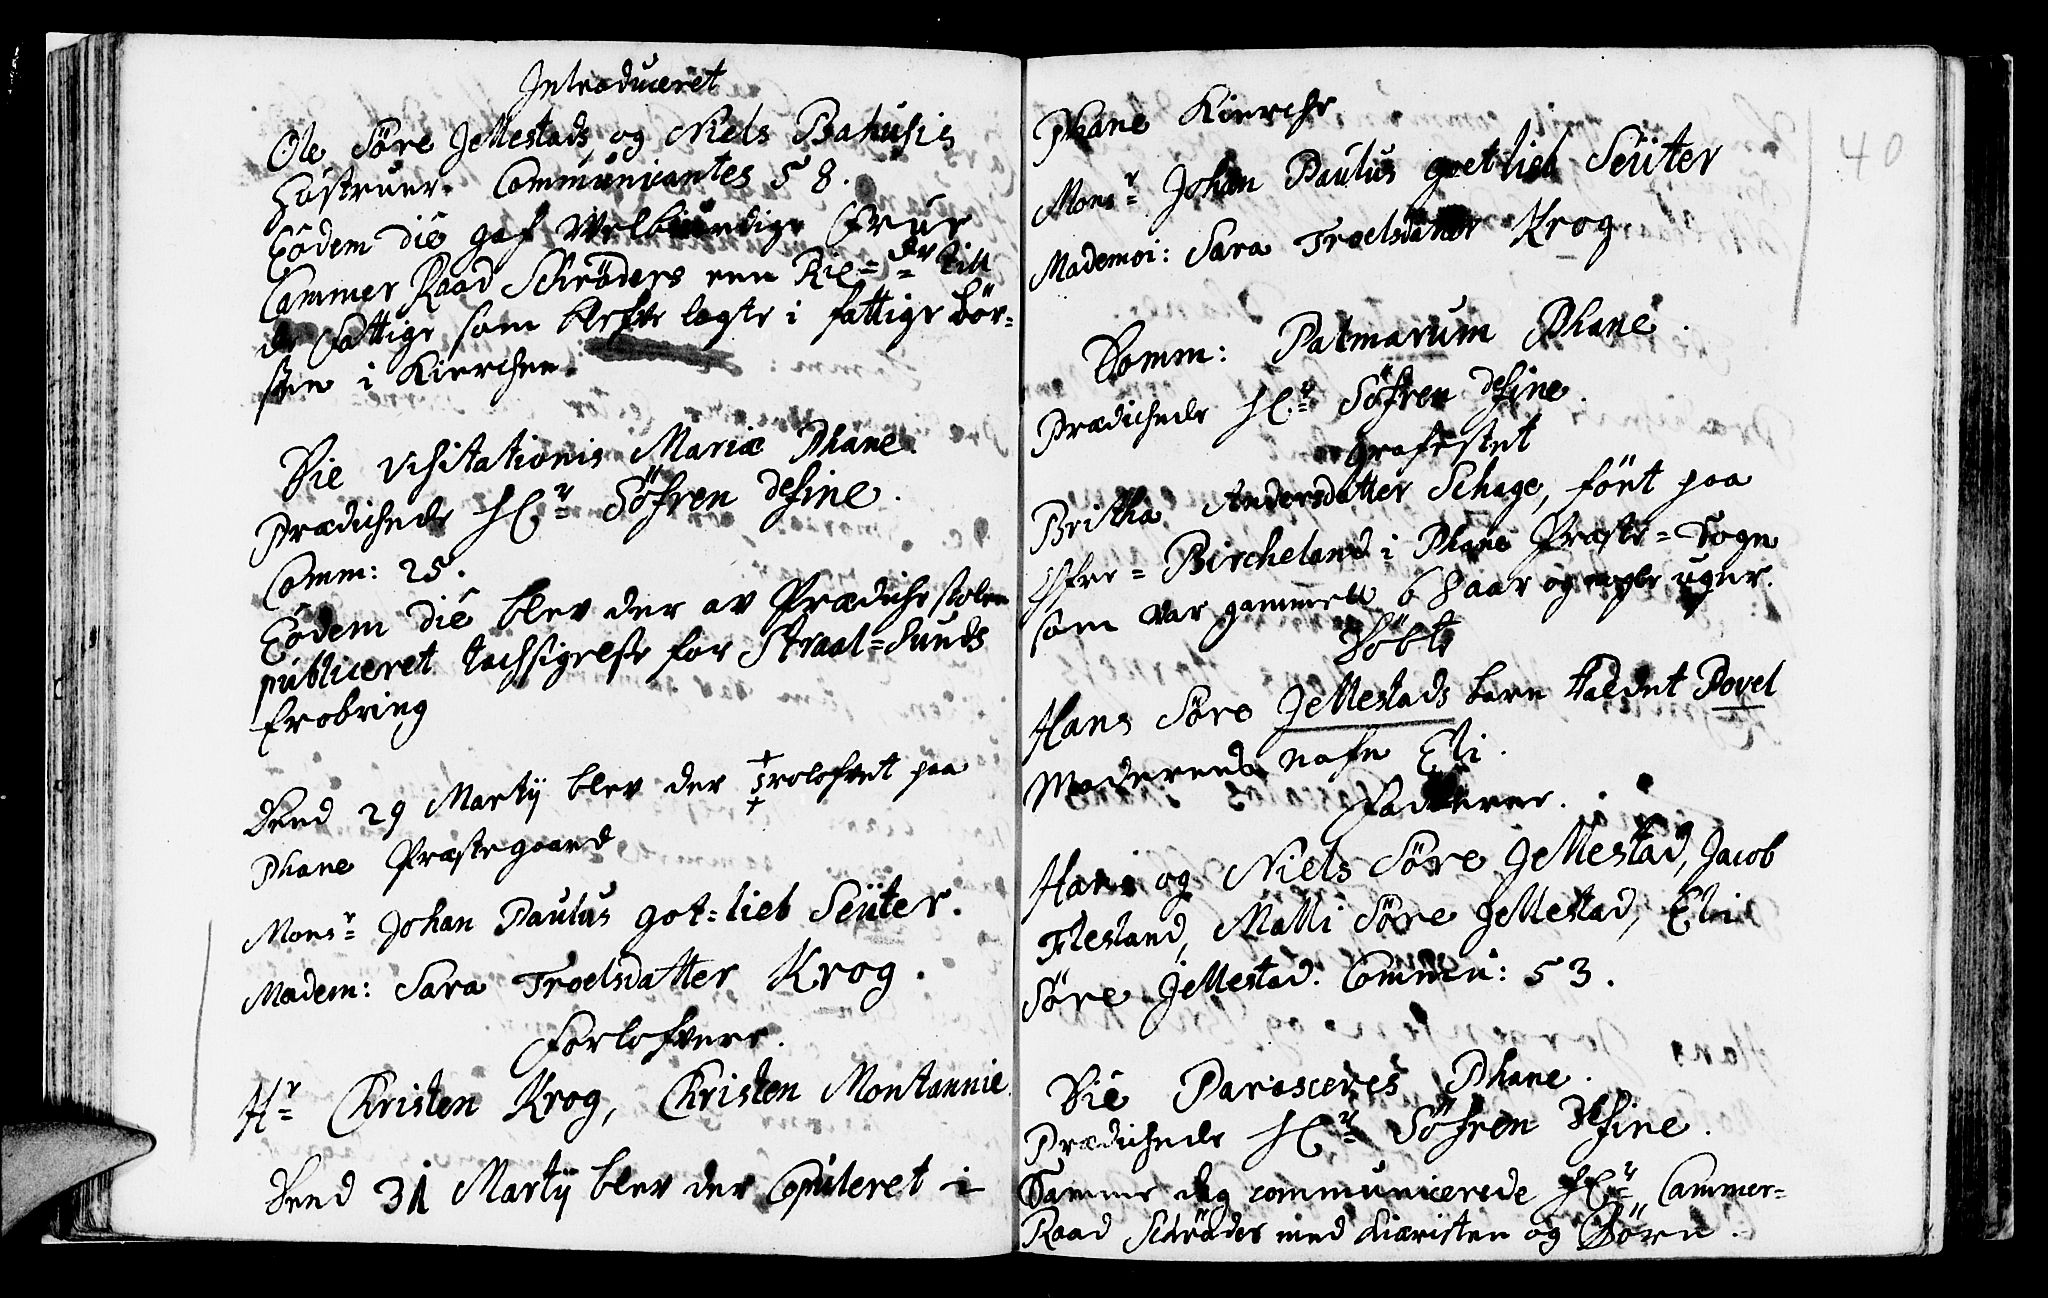 Introduceret
Ole Søre Jellestads og Niels Bahusis
Høstruer. Communicantes 58.
Eodem die gaf Welbiurdige Frue
Cammer Raad Schrøders een Rix=dr till
de fattige som blefve lagte i fattige Bør=
ssen i Kierchen.
Die Visitationis Mariæ Phane
Prædichede Hr Søfren Hfine.
Comm: 25.
Eodem die blev der av Prædiche stolen
publiceret tachsigelse for Straal=Sunds
Erobring
Dend 29 Martij blev der Trolofvet paa
Phane Præstegaard
Monsr Johan Paulus got=lieb Seüter.
Madem: Sara Troelsdatter Krog.
Forlofvere.
Hr Christen Krog, Christen Montannie.
Dend 31 Martij blev der Copuleret i
40
Phane Kierche
Monsr Johan Paulus gottlieb Seüter
Mademoi: Sara Troelsdatter Krog
Domm: Palmarum Phane.
Prædichede Hr Søfren Hfine.
Grafestet
Britha Andersdatter Schage, født paa
Øfre=Bircheland i Phane Præste=Sogn
som var gammell 68 aar og nogle uger.
Døbt
Hans Søre Jellestads barn kaldet Povel
Moderens nafn Eli.
Fadderer.
Hans og Niels Søre Jellestad, Jacob
Flesland, Malli Søre Jellestad, Eli
Søre Jellestad. Commu: 53.
Die Parasceves Phane.
Prædichede Hr Søfren Hfine.
Samme dag communicerede Hr Cammer=
Raad Schrøder med Kiæristen og Børn.